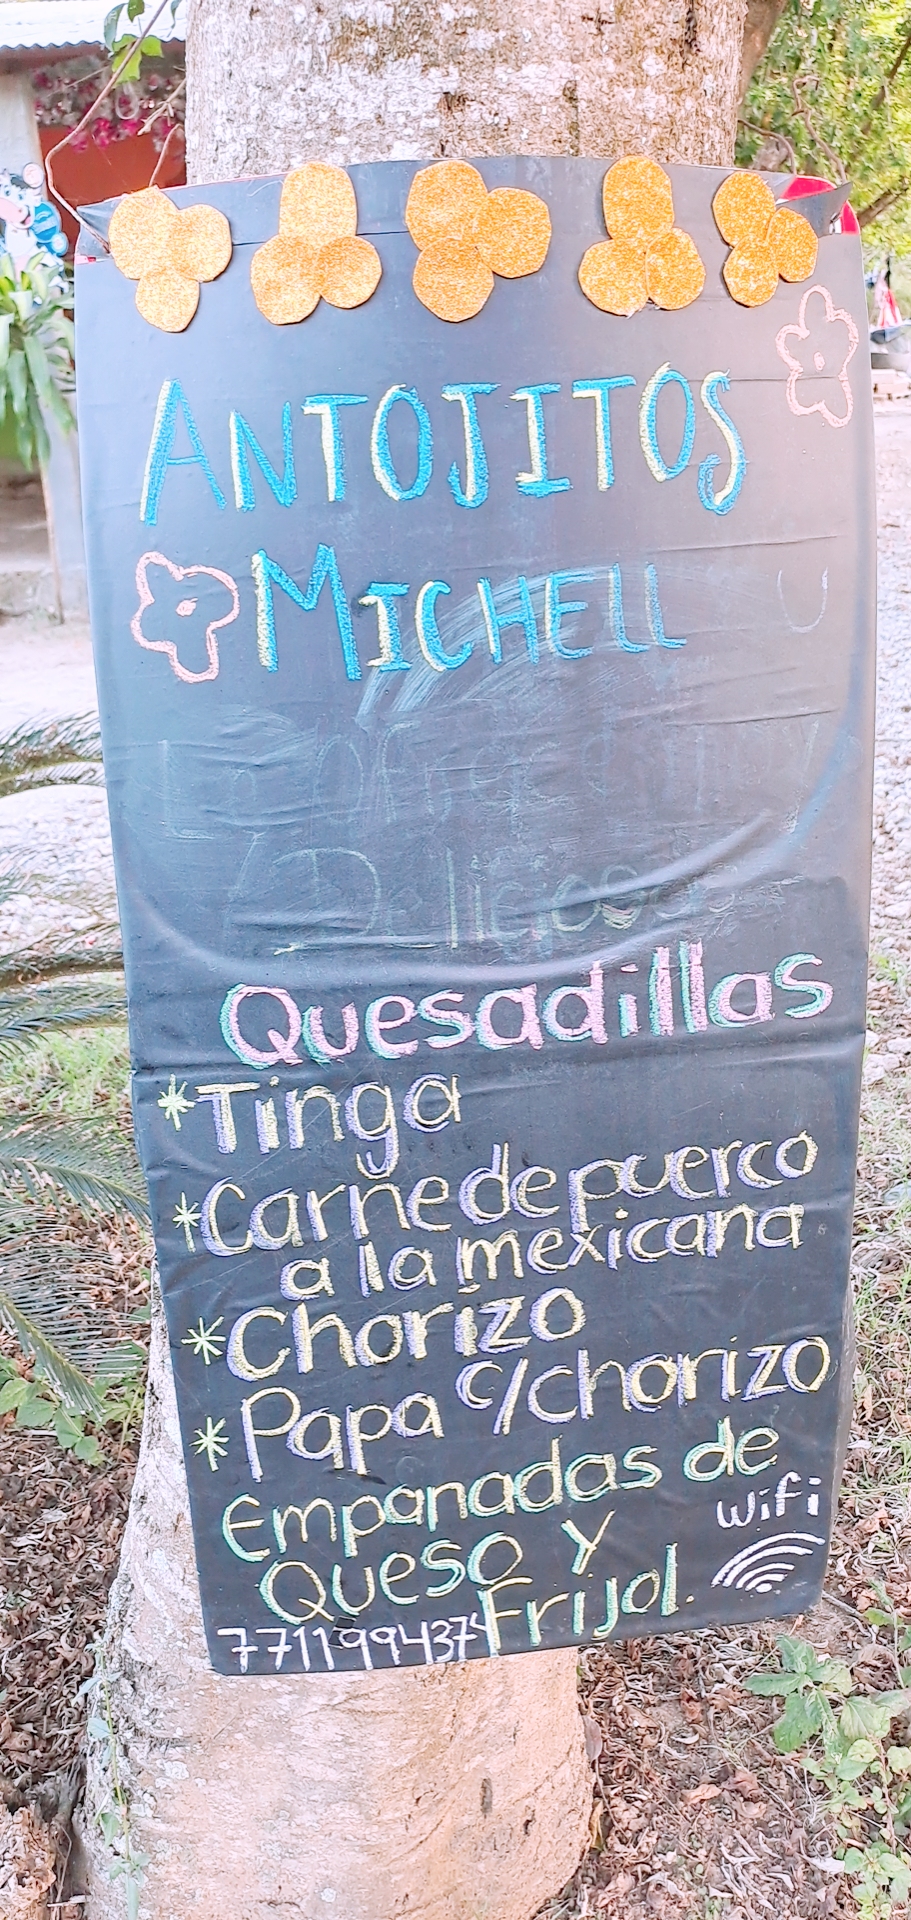 ANTOJITOS
MICHELL
Quesadillas
*Tinga
*Carne de puerco
a la mexicana
*Chorizo
*Papa c/chorizo
Empanadas de
Queso y
Frijol.
Wifi
7711994374